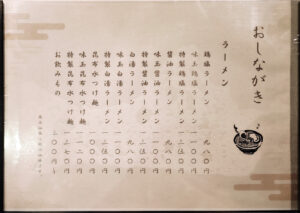 おしながき
ラーメン
鶏塩ラーメン 九八〇円
味玉鶏塩ラーメン 一一〇〇円
特製鶏塩ラーメン 一三五〇円
醤油ラーメン 九八〇円
味玉醤油ラーメン 一一〇〇円
特製醤油ラーメン 一三五〇円
白湯ラーメン 九八〇円
味玉白湯ラーメン 一一〇〇円
特製白湯ラーメン 一三五〇円
昆布水つけ麺 一一〇〇円
味玉昆布水つけ麺
特製昆布水つけ麺
お飲みもの 二〇〇円〜